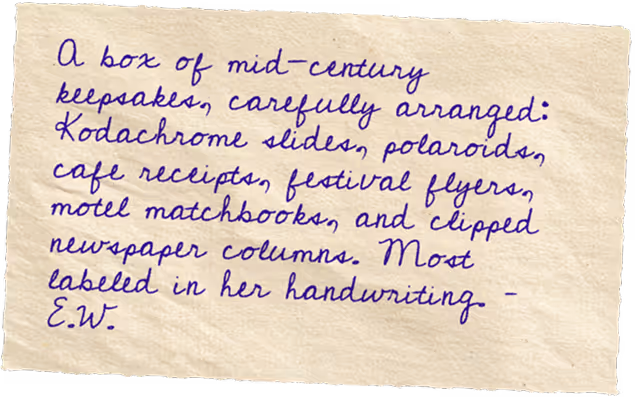 A box of mid-century
keepsakes, carefully arranged:
Kodachrome slides, polaroids,
cafe receipts, festival flyers,
motel matchbooks, and clipped
newspaper columns. Most
labeled in her handwriting. -
E.W.